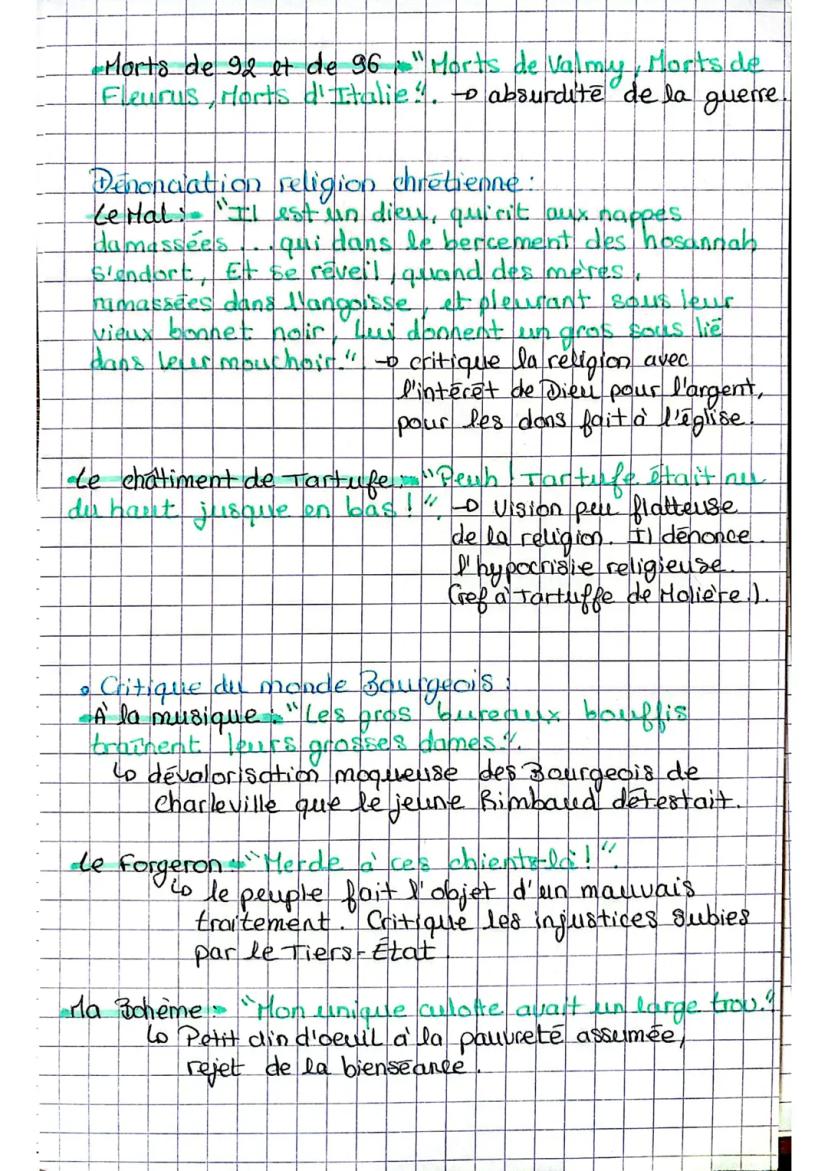 Morts de 92 et de 96 : "Morts de Valmy, Morts de
Fleurus, Morts d'Italie". → absurdité de la guerre.
Dénonciation religion chrétienne :
Le Mal : "Il est un dieu, qui rit aux nappes
damassées ... qui dans le bercement des hosannah
s'endort, Et se réveil, quand des mères,
ramassées dans l'angoisse, et pleurant sous leur
vieux bonnet noir, Lui donnent un gros sous lié
dans leur mouchoir." → critique la religion avec
l'intérêt de Dieu pour l'argent,
pour les dons fait à l'église.
Le châtiment de Tartufe : "Peuh ! Tartufe était nu
du haut jusque en bas !" → Vision peu flatteuse
de la religion. Il dénonce
l'hypocrisie religieuse.
(ref à Tartuffe de Molière.).
• Critique du monde Bourgeois :
À la musique : "Les gros bureaux bouffis
traînent leurs grosses dames".
↳ dévalorisation moqueuse des Bourgeois de
Charleville que le jeune Rimbaud détestait.
Le Forgeron : "Merde à ces chients-là !".
↳ le peuple fait l'objet d'un mauvais
traitement. Critique les injustices subies
par le Tiers-État.
Ma Bohème : "Mon unique culotte avait un large trou."
↳ Petit clin d'oeuil à la pauvreté assumée,
rejet de la bienséance.